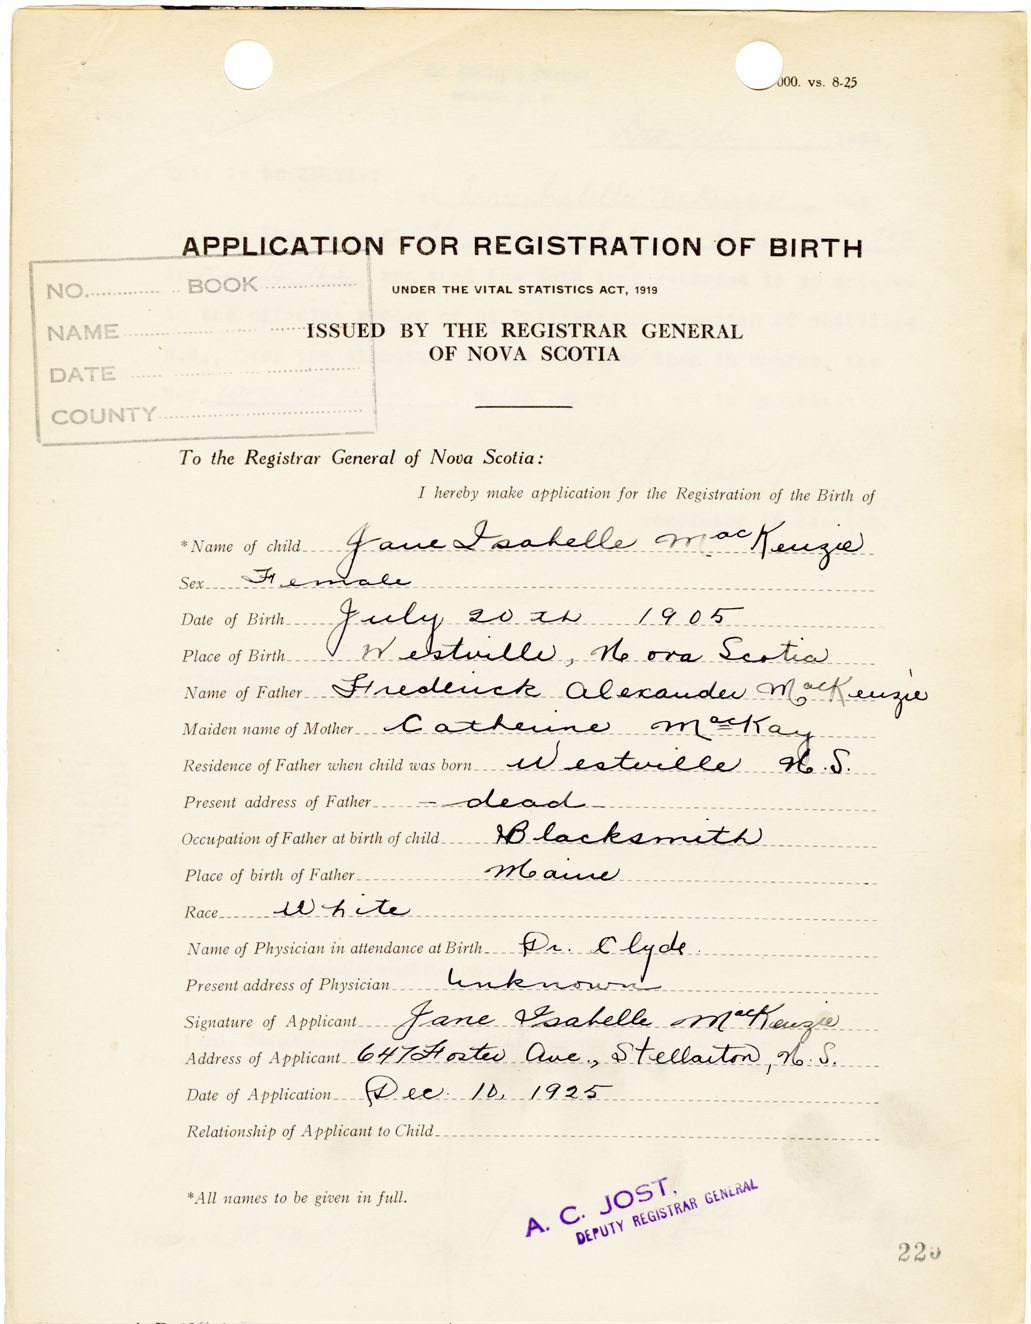 000. vs. 8-25
APPLICATION FOR REGISTRATION OF BIRTH
UNDER THE VITAL STATISTICS ACT, 1919
ISSUED BY THE REGISTRAR GENERAL
OF NOVA SCOTIA
NO. BOOK
NAME
DATE
COUNTY
To the Registrar General of Nova Scotia:
I hereby make application for the Registration of the Birth of
*Name of child Jane Isabelle MacKenzie
Sex Female
Date of Birth July 20th 1905
Place of Birth Westville, Nova Scotia
Name of Father Frederick Alexander MacKenzie
Maiden name of Mother Catherine MacKay
Residence of Father when child was born Westville N.S.
Present address of Father - dead -
Occupation of Father at birth of child Blacksmith
Place of birth of Father Maine
Race White
Name of Physician in attendance at Birth Dr. Clyde.
Present address of Physician Unknown
Signature of Applicant Jane Isabelle MacKenzie
Address of Applicant 647 Foster Ave., Stellarton, N.S.
Date of Application Dec. 10, 1925
Relationship of Applicant to Child
*All names to be given in full.
A. C. JOST,
DEPUTY REGISTRAR GENERAL